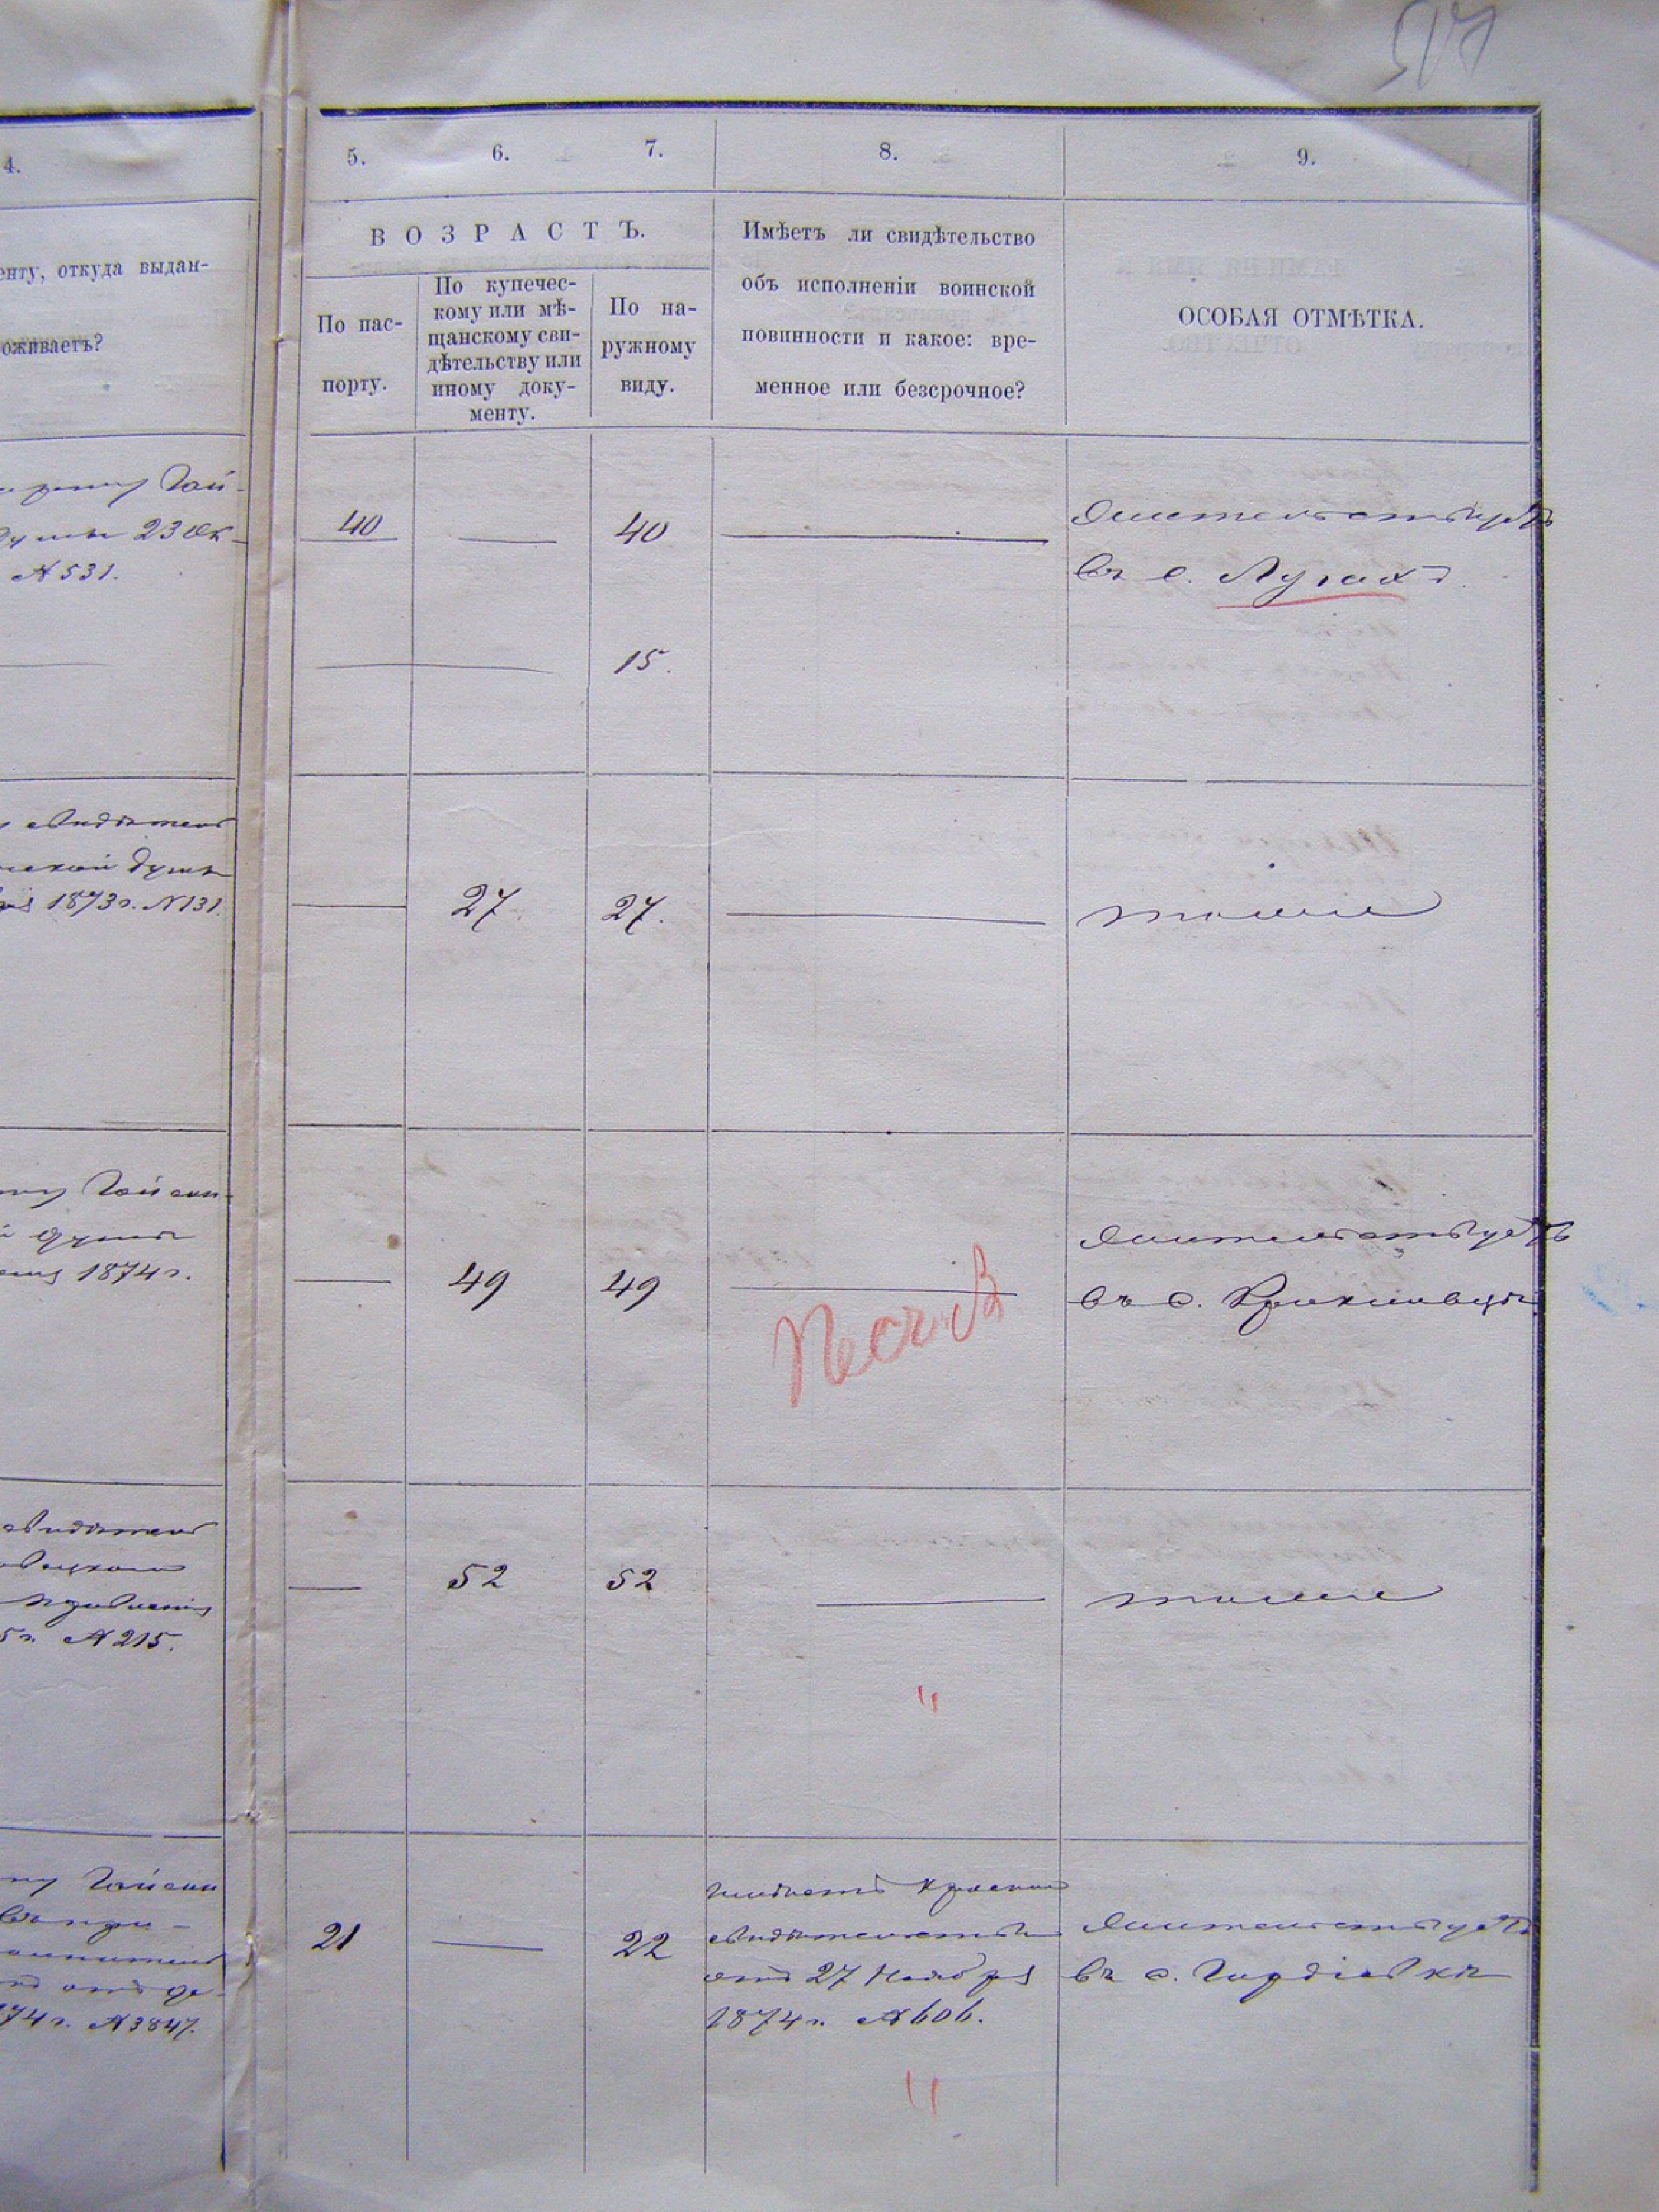 517
4.
5.
6.
7.
8.
9.
енту, откуда выдан-
оживаетъ?
ВОЗРАСТЪ.
По пас-
порту.
По купечес-
кому или мѣ-
щанскому сви-
дѣтельству или
иному доку-
менту.
По на-
ружному
виду.
Имѣетъ ли свидѣтельство
объ исполненіи воинской
повинности и какое: вре-
менное или безсрочное?
ОСОБАЯ ОТМѢТКА.
Гай-
Думы 23 Ок-
№ 531.
40
40
жительствуетъ
въ с. Лугахъ.
15.
свидѣтель
думы
1873 г. № 131.
27
27.
тоже
Гайсин-
й думы
1874 г.
49
49
жительствуетъ
въ с.
свидѣтель
правленія
5 г. № 215.
52
52
тоже
"
Гайсин
74 г. № 3847.
21
22
имѣетъ
свидѣтельство
отъ 27 Ноября
1874 г. № 606.
жительствуетъ
въ с. Гордіевкѣ
"